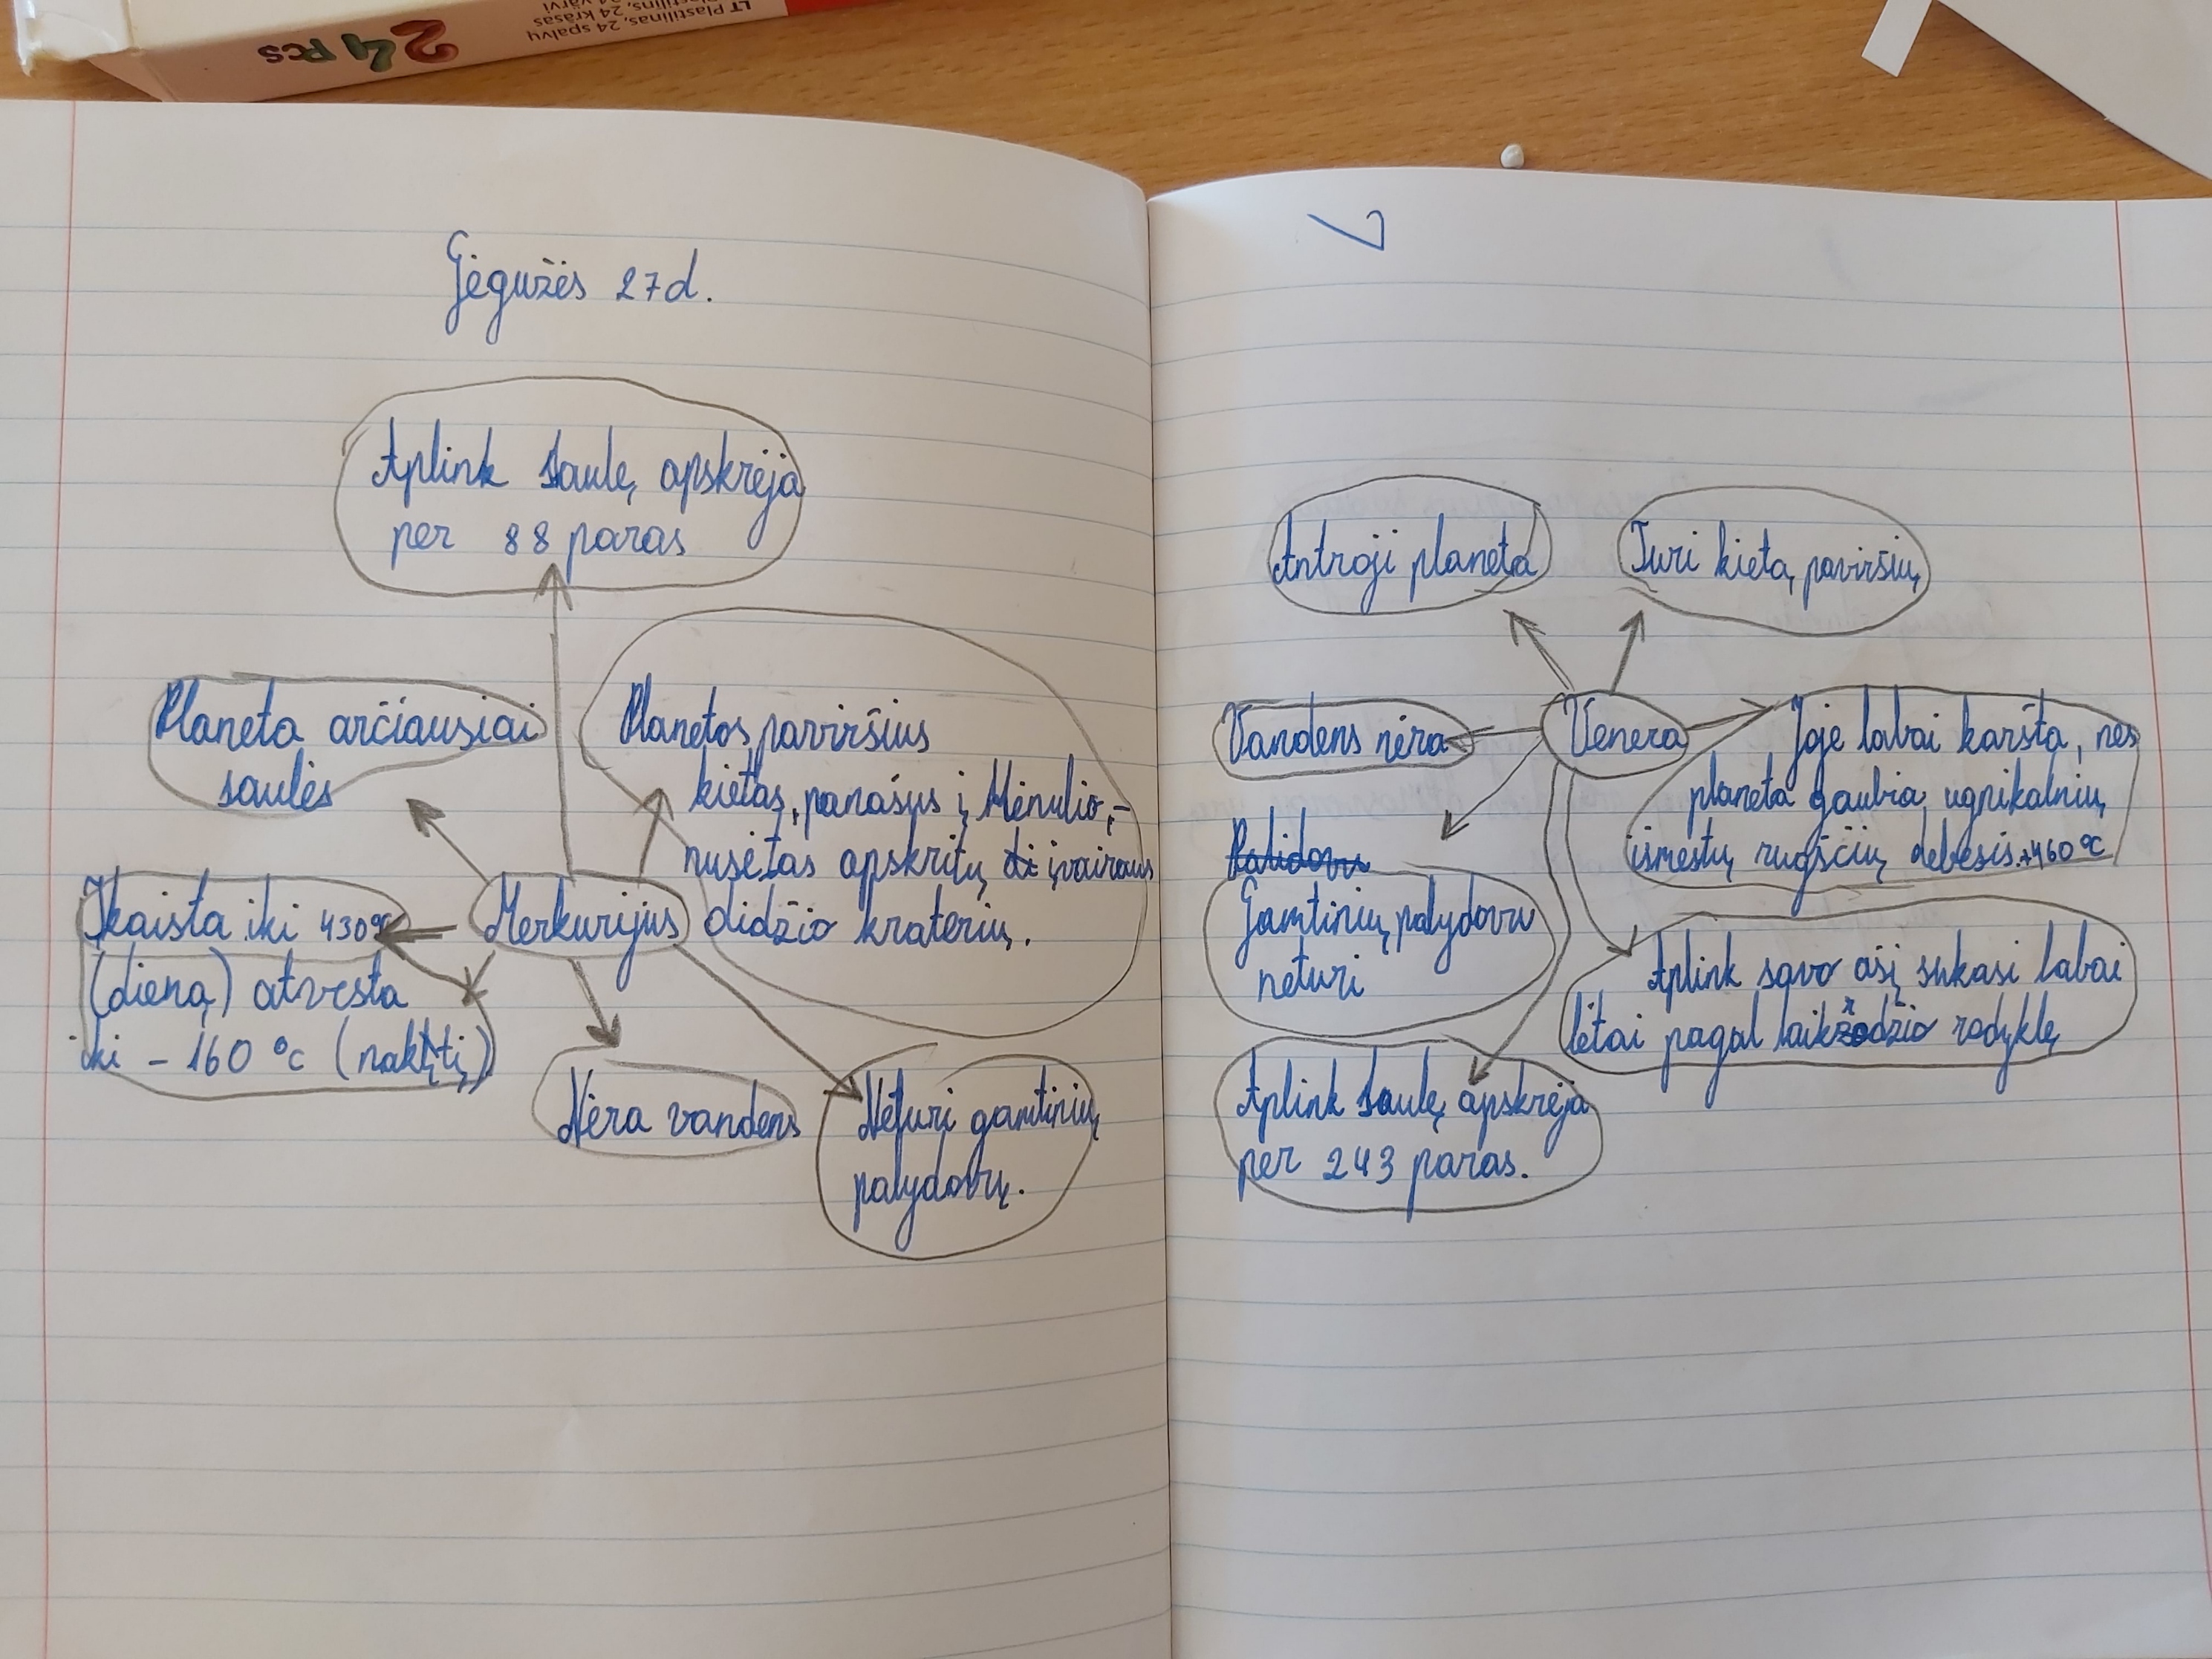 24 PCS
LT Plastilinas, 24 spalvų
Gėgužės 27d.
Aplink Saulę apskrėja
per 88 paras
Planeta arčiausiai
saulės
Planetos paviršius
kietas, panašus į Mėnulio,-
nusėtas apskritų di įvairaus
didžio kraterių.
Įkaista iki 430°c
(dieną) atvėsta
iki - 160 °c (naktį)
Merkurijus
Nėra vandens
Neturi gamtinių
palydovų.
Antroji planeta
Turi kietą paviršių
Vandens nėra
Venera
Joje labai karšta, nes
planeta gaubia ugnikalnių
išmestų rugščių debesis.+460°c
Palidovu
Gamtinių palydovu
neturi
Aplink savo ašį sukasi labai
lėtai pagal laikrodžio rodyklę
Aplink Saulę apskrėja
per 243 paras.